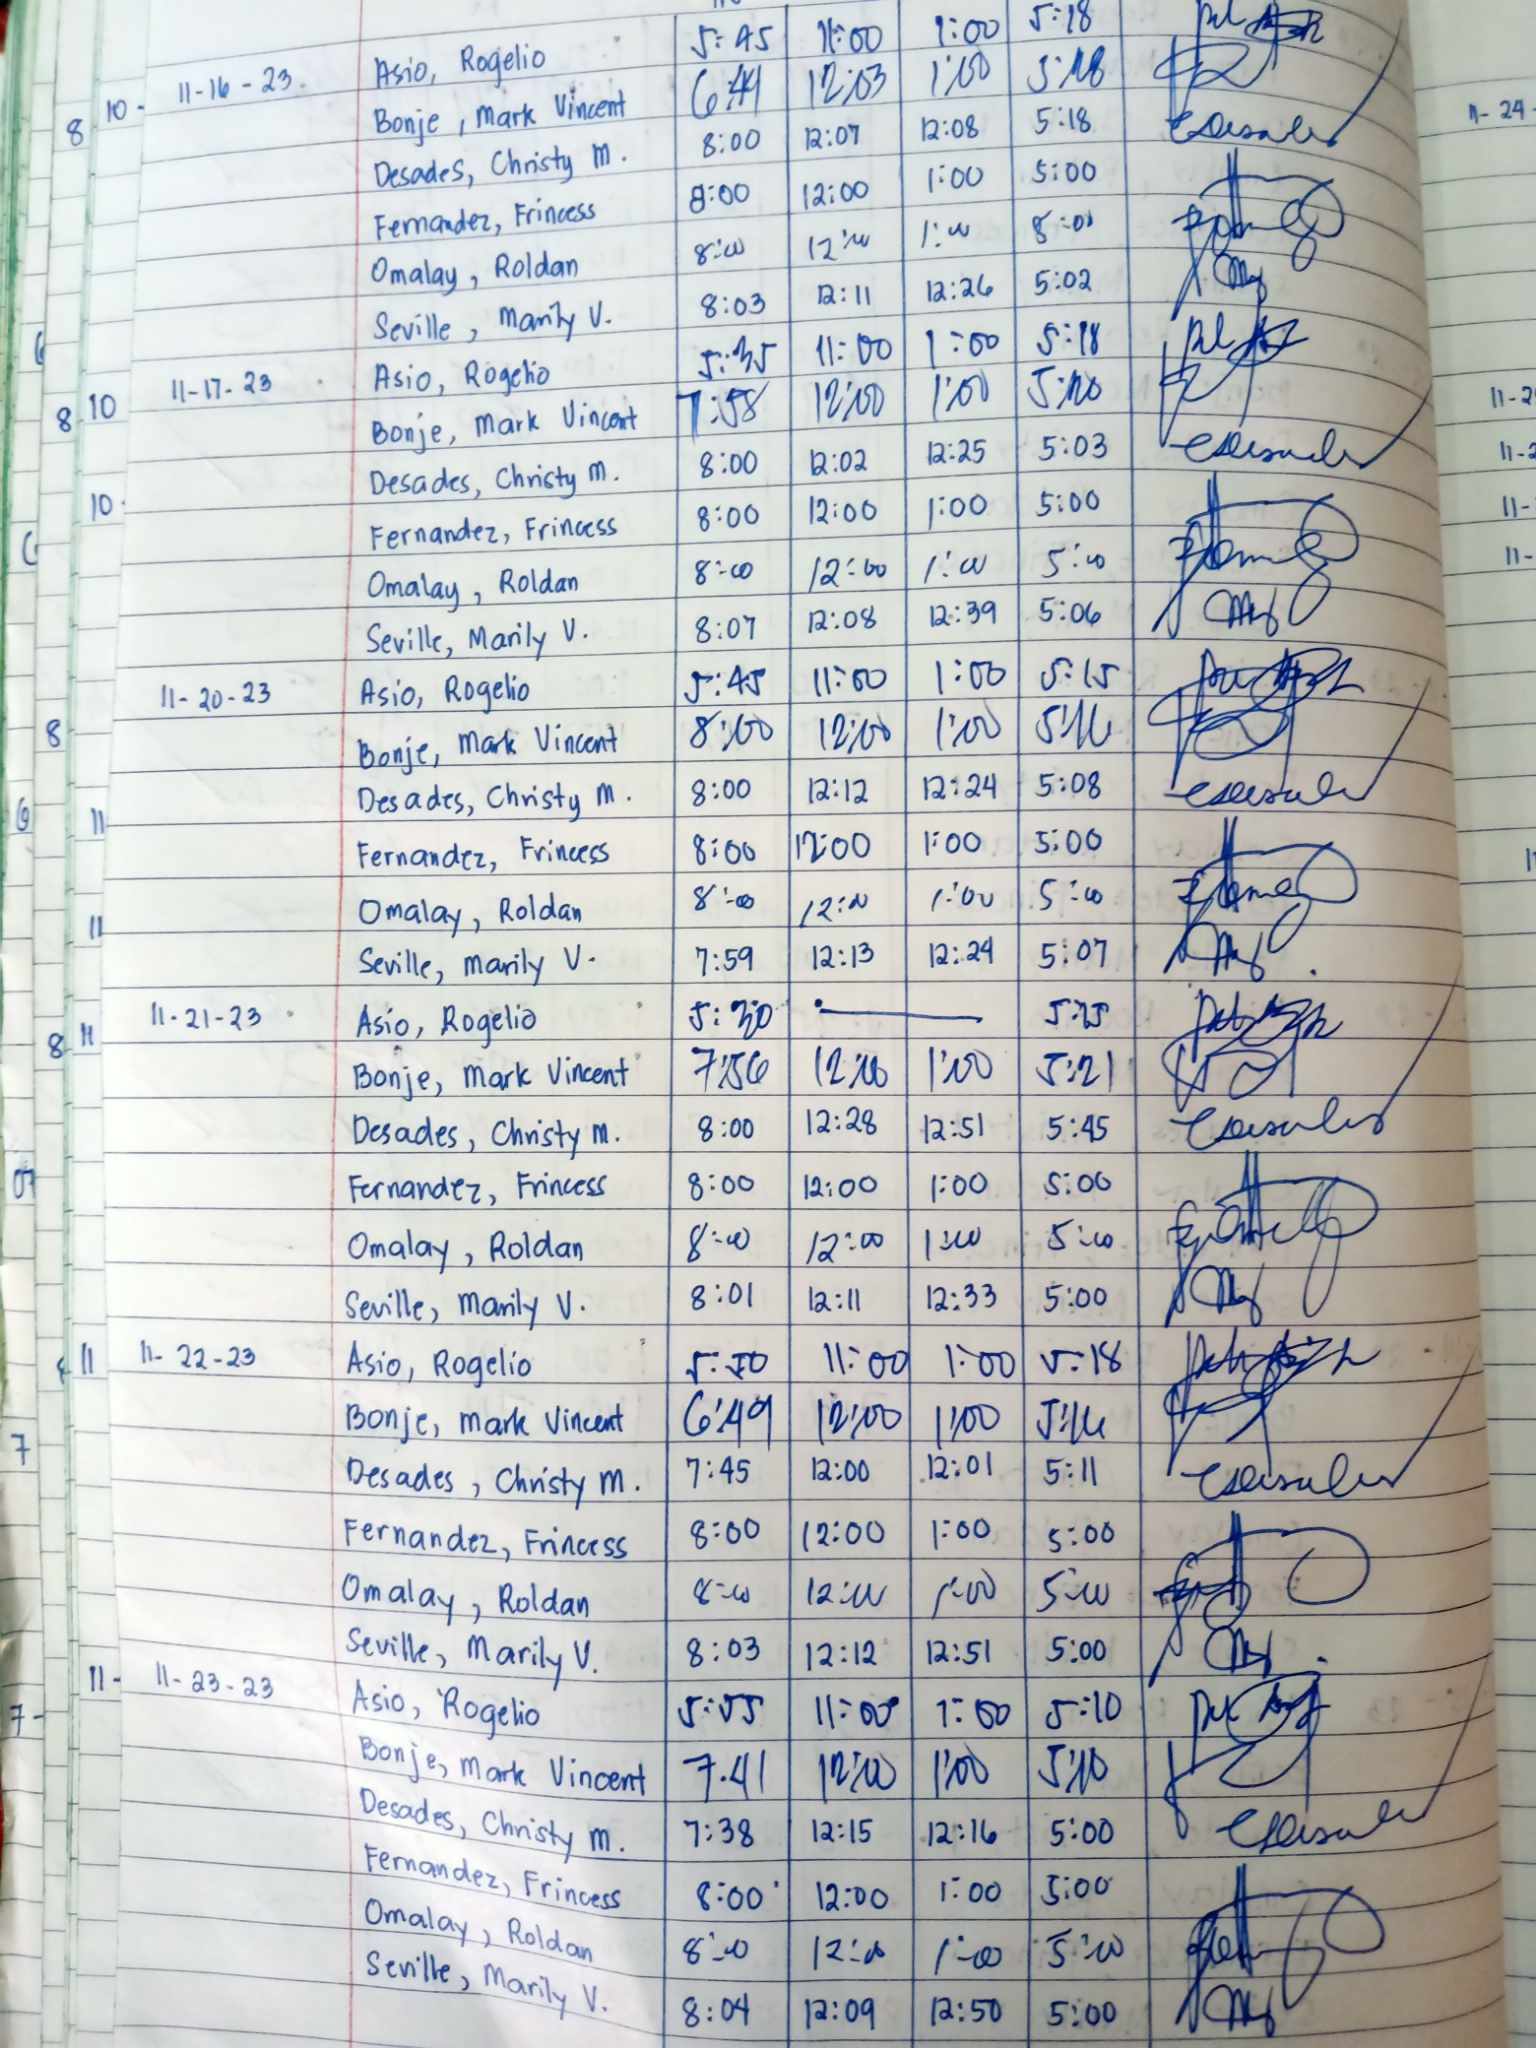 11-16-23. Asio, Rogelio 5:45 11:00 1:00 5:18
Bonje, Mark Vincent 6:49 12:03 1:00 5:18
Desades, Christy M. 8:00 12:07 12:08 5:18
Fernandez, Frincess 8:00 12:00 1:00 5:00
Omalay, Roldan 8:00 12:00 1:00 8:00
Seville, Marily V. 8:03 12:11 12:26 5:02
11-17-23 Asio, Rogelio 5:35 11:00 1:00 5:18
Bonje, Mark Vincent 7:58 12:00 1:00 5:10
Desades, Christy M. 8:00 12:02 12:25 5:03
Fernandez, Frincess 8:00 12:00 1:00 5:00
Omalay, Roldan 8:00 12:00 1:00 5:00
Seville, Marily V. 8:07 12:08 12:39 5:06
11-20-23 Asio, Rogelio 5:45 11:00 1:00 5:15
Bonje, Mark Vincent 8:00 12:00 1:00 5:16
Desades, Christy M. 8:00 12:12 12:24 5:08
Fernandez, Frincess 8:00 12:00 1:00 5:00
Omalay, Roldan 8:00 12:00 1:00 5:00
Seville, Marily V. 7:59 12:13 12:24 5:07
11-21-23 Asio, Rogelio 5:30 5:25
Bonje, Mark Vincent 7:56 12:00 1:00 5:21
Desades, Christy M. 8:00 12:28 12:51 5:45
Fernandez, Frincess 8:00 12:00 1:00 5:00
Omalay, Roldan 8:00 12:00 1:00 5:00
Seville, Marily V. 8:01 12:11 12:33 5:00
11-22-23 Asio, Rogelio 5:50 11:00 1:00 5:18
Bonje, Mark Vincent 6:49 12:00 1:00 5:16
Desades, Christy M. 7:45 12:00 12:01 5:11
Fernandez, Frincess 8:00 12:00 1:00 5:00
Omalay, Roldan 8:00 12:00 1:00 5:00
Seville, Marily V. 8:03 12:12 12:51 5:00
11-23-23 Asio, Rogelio 5:55 11:00 1:00 5:10
Bonje, Mark Vincent 7.41 12:00 1:00 5:10
Desades, Christy M. 7:38 12:15 12:16 5:00
Fernandez, Frincess 8:00 12:00 1:00 5:00
Omalay, Roldan 8:00 12:00 1:00 5:00
Seville, Marily V. 8:04 12:09 12:50 5:00